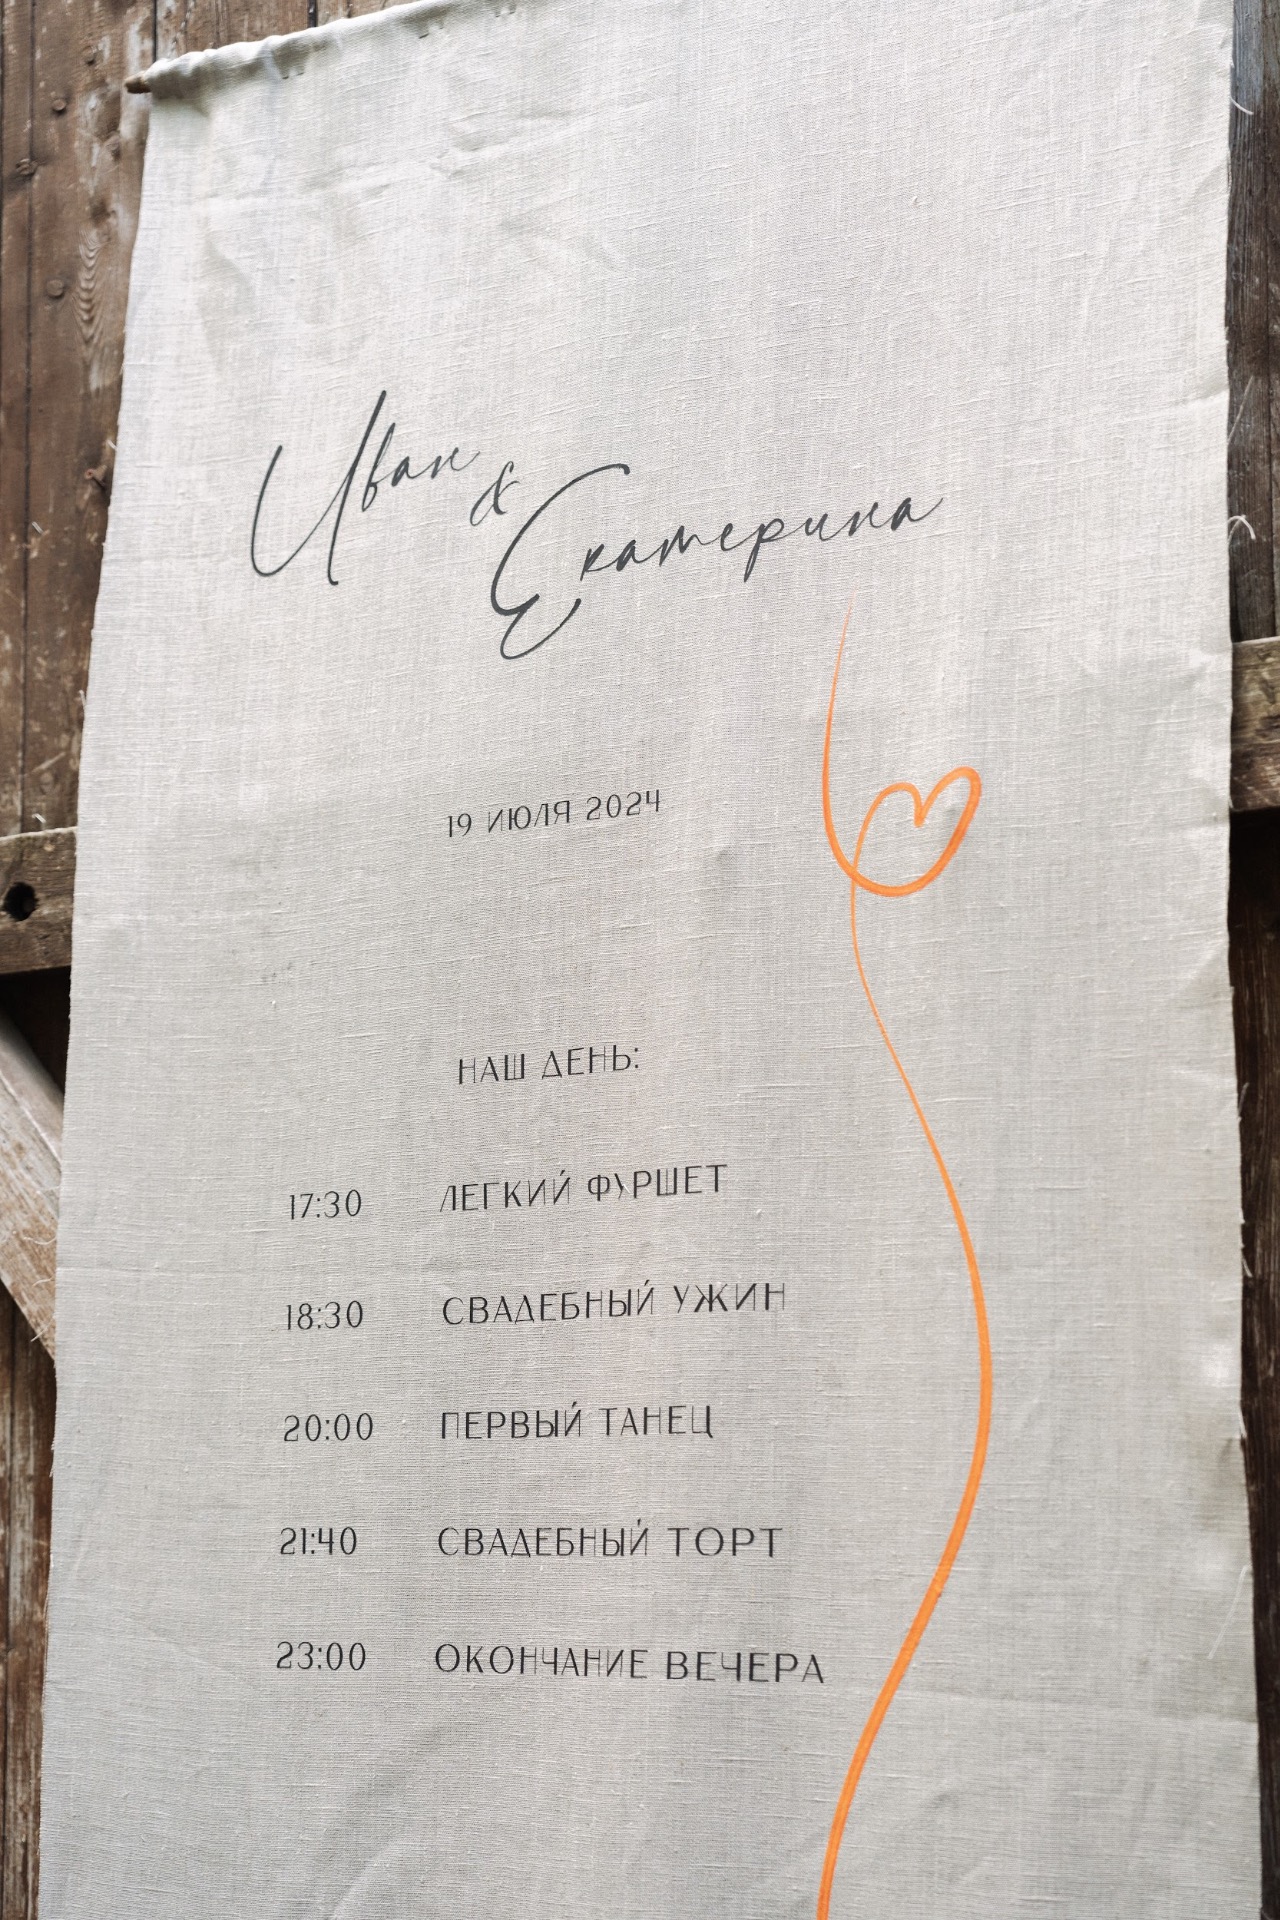 Иван
&
Екатерина
19 ИЮЛЯ 2024
НАШ ДЕНЬ:
17:30 ЛЕГКИЙ ФУРШЕТ
18:30 СВАДЕБНЫЙ УЖИН
20:00 ПЕРВЫЙ ТАНЕЦ
21:40 СВАДЕБНЫЙ ТОРТ
23:00 ОКОНЧАНИЕ ВЕЧЕРА